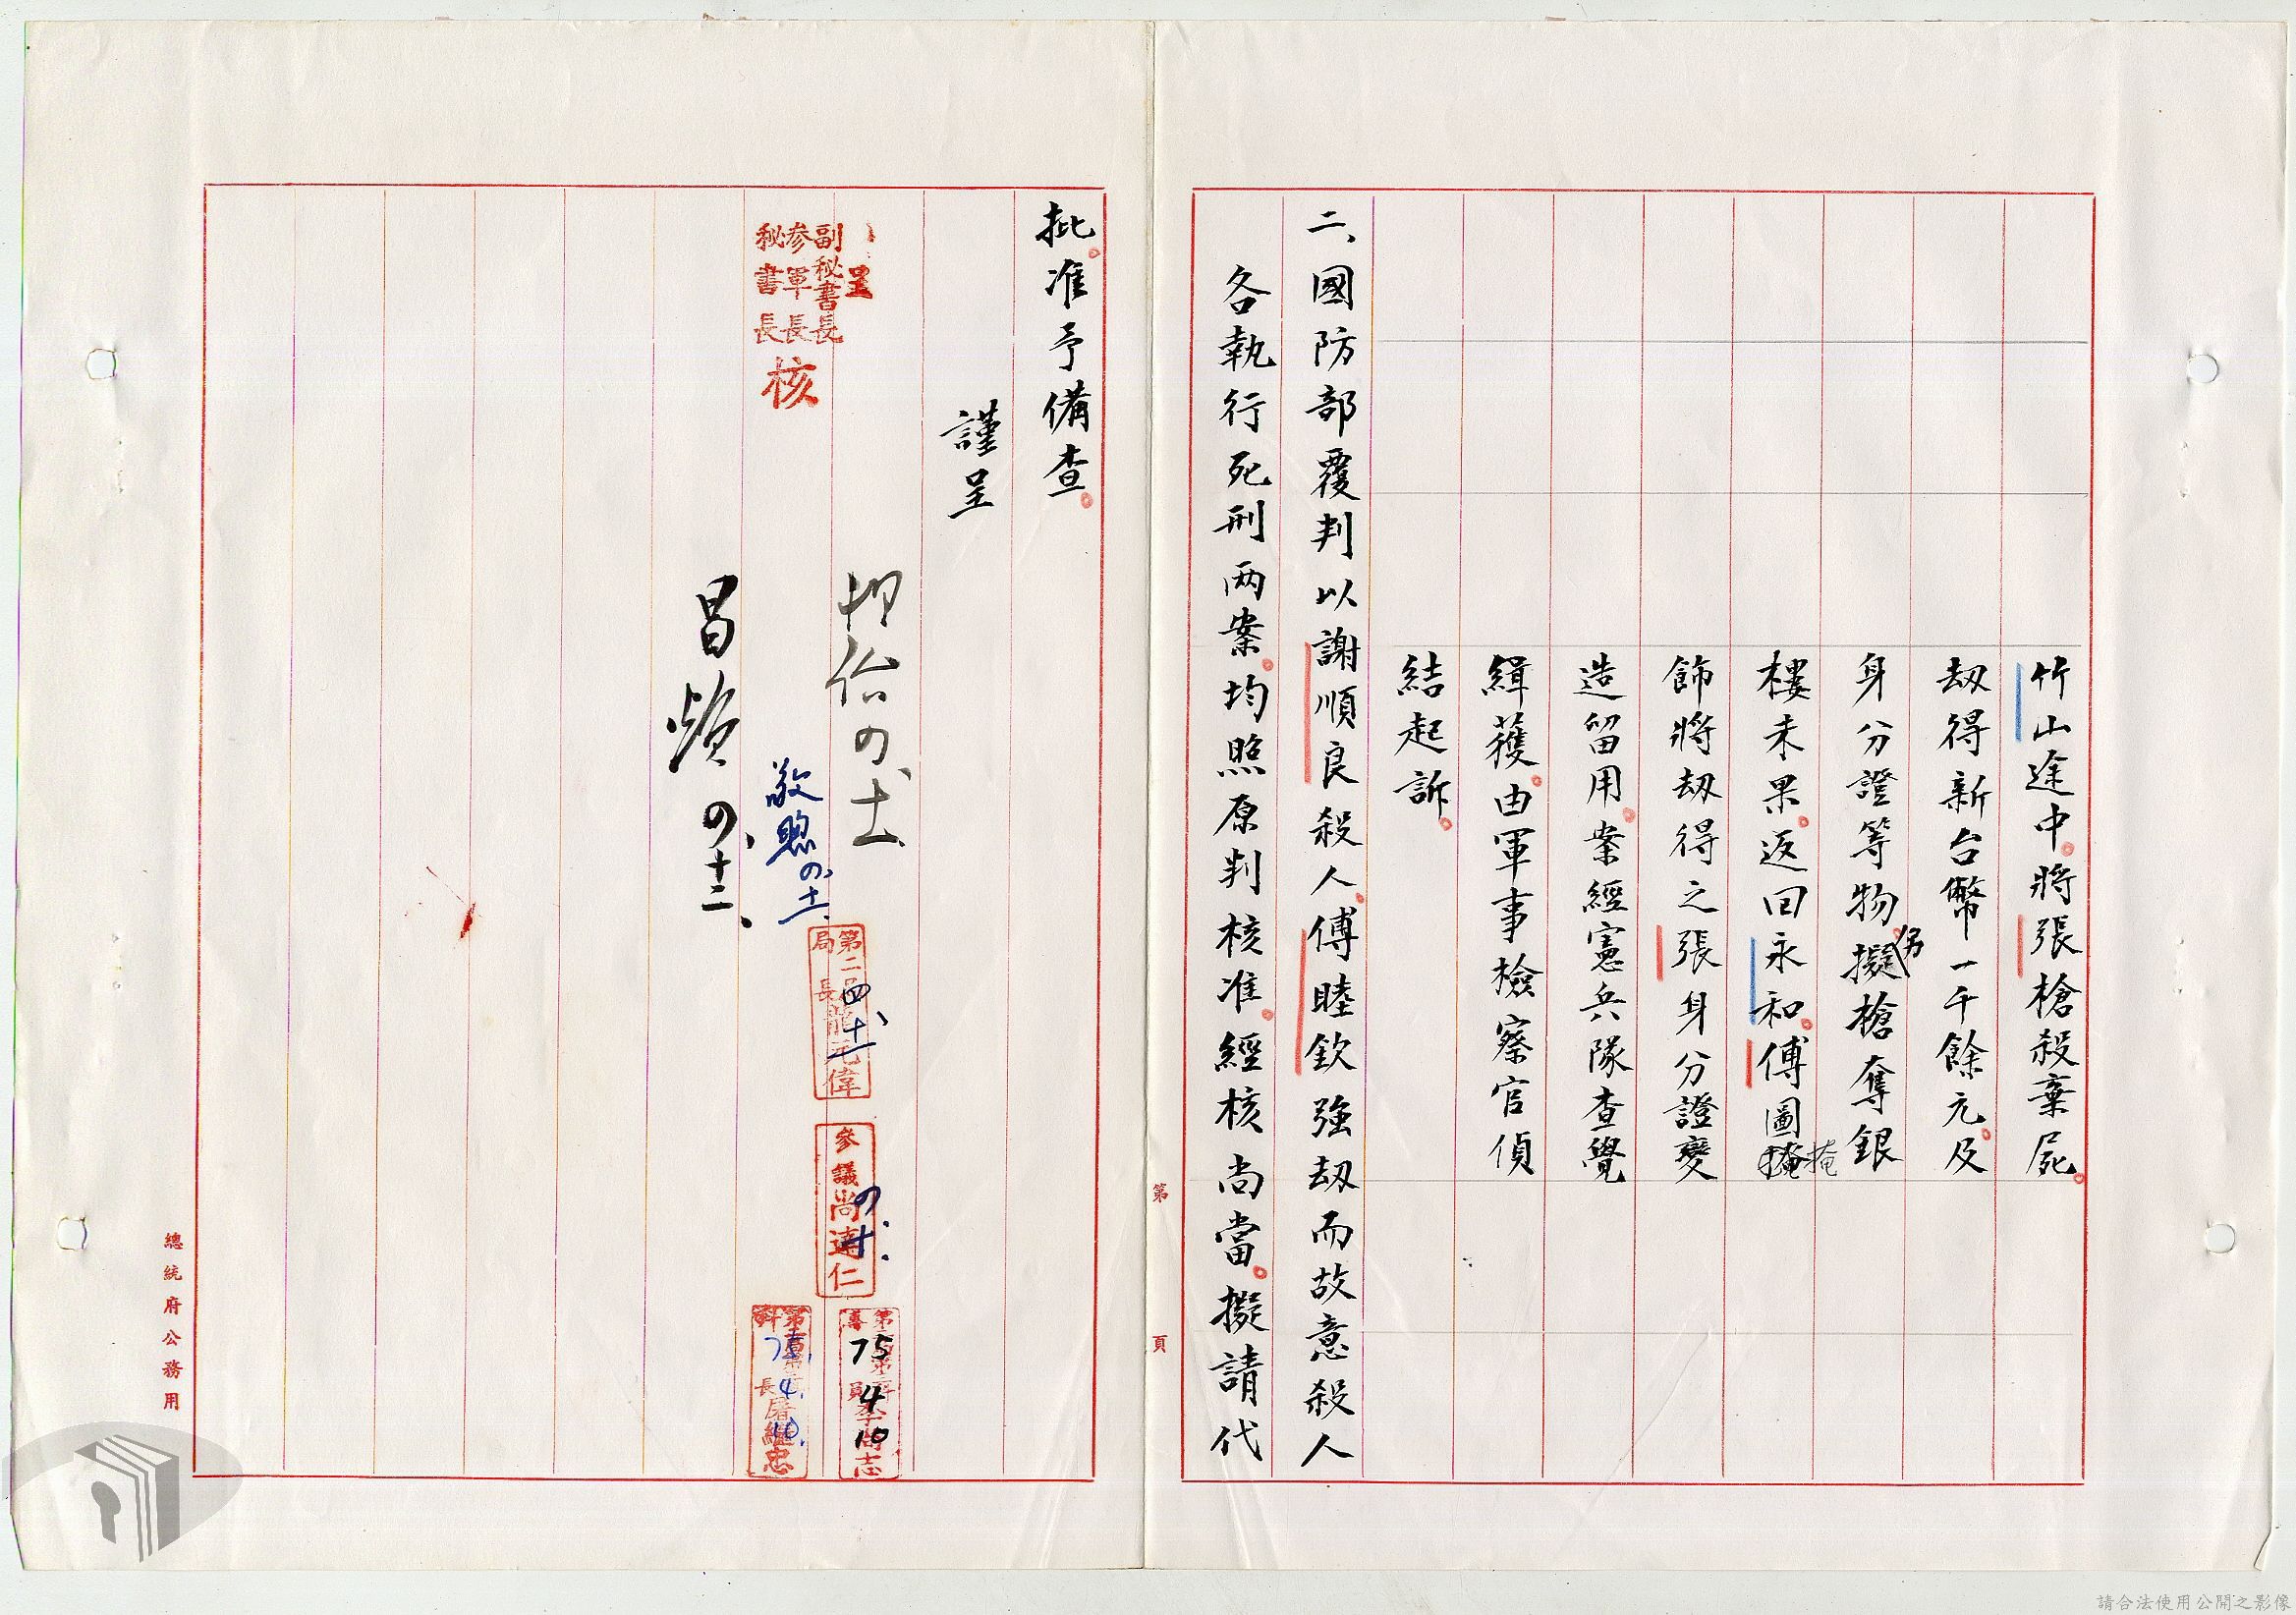 竹山途中。將張槍殺棄屍。
劫得新台幣一千餘元。及
身分證等物。擬另槍奪銀
樓未果。返回永和。傅圖掩
掩
飾將劫得之張身分證變
造留用。案經憲兵隊查覺
緝獲。由軍事檢察官偵
結起訴。
二、國防部覆判以謝順良殺人。傅睦欽強劫而故意殺人
各執行死刑兩案。均照原判核准。經核尚當。擬請代
第 頁
批。准予備查。
謹呈
呈
副秘書長
參軍長
秘書長
核
四、十一
敬 四、十一
昌煥 四、十二、
第二局
局長
偉
參議尚達仁
四、十、
75
4
10
李尚志
75.
4.
10.
科長屠繼忠
總統府公務用
請合法使用公開之影像